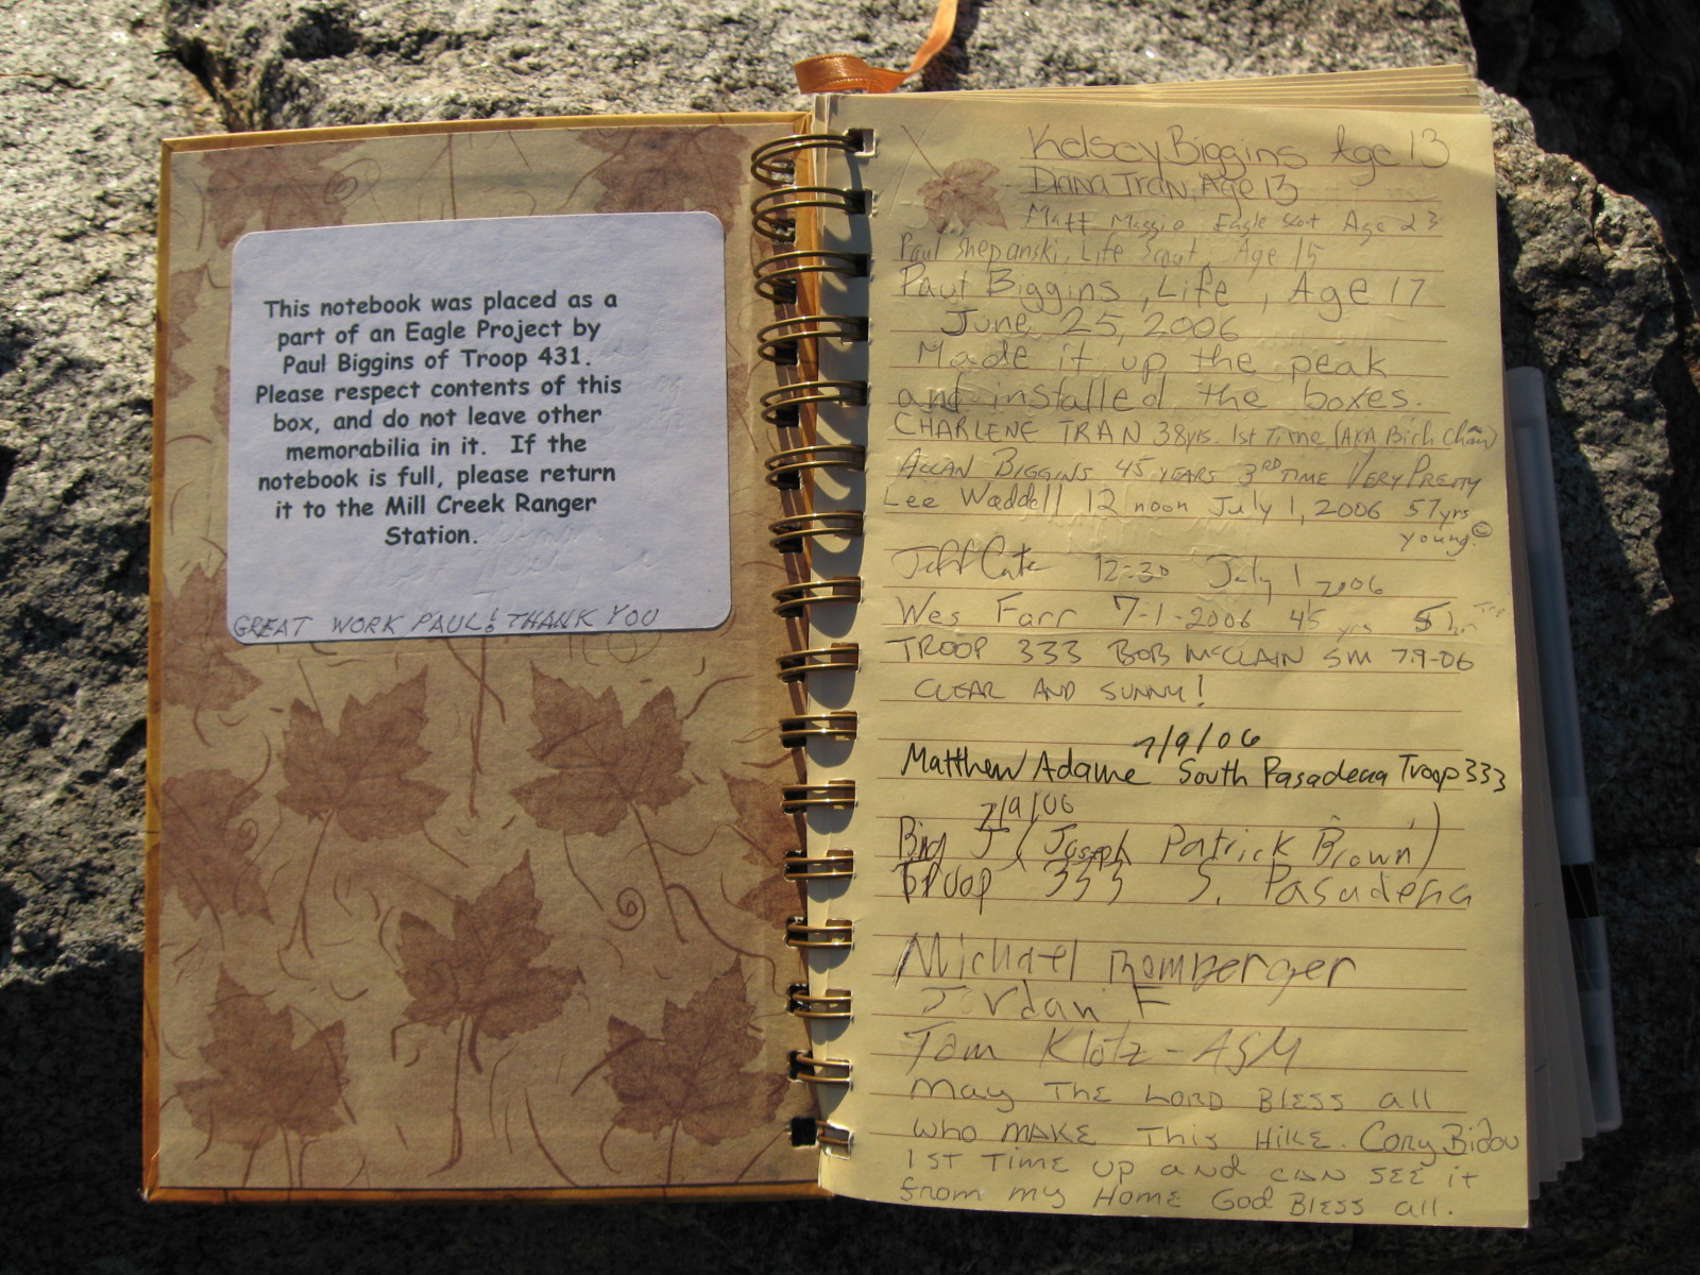 This notebook was placed as a
part of an Eagle Project by
Paul Biggins of Troop 431.
Please respect contents of this
box, and do not leave other
memorabilia in it. If the
notebook is full, please return
it to the Mill Creek Ranger
Station.
GREAT WORK PAUL! THANK YOU
Kelsey Biggins Age 13
Diana Tran, Age 13
Matt Maggio Eagle Scot Age 23
Paul Shepanski, Life Scout, Age 15
Paul Biggins, Life, Age 17
June 25, 2006
Made it up the peak
and installed the boxes.
CHARLENE TRAN 38yrs. 1st Time (AKA Bich Chan)
ALLAN BIGGINS 45 YEARS 3RD TIME VERY PRETTY
Lee Waddell 12 noon July 1, 2006 57yrs
young. ☺
Jeff Cate 12:30 July 1 2006
Wes Farr 7-1-2006 45 yrs
TROOP 333 BOB McCLAIN SM 7-9-06
CLEAR AND SUNNY!
7/9/06
Matthew Adame South Pasadena Troop 333
7/9/06
Big J (Joseph Patrick Brown)
Troop 333 S. Pasadena
Michael Bomberger
Jordan F
Tom Klotz - ASM
May THE LORD BLESS all
who MAKE This HIKE. Cory Bidou
1ST TIME UP and can SEE it
from my HOME God BLESS all.